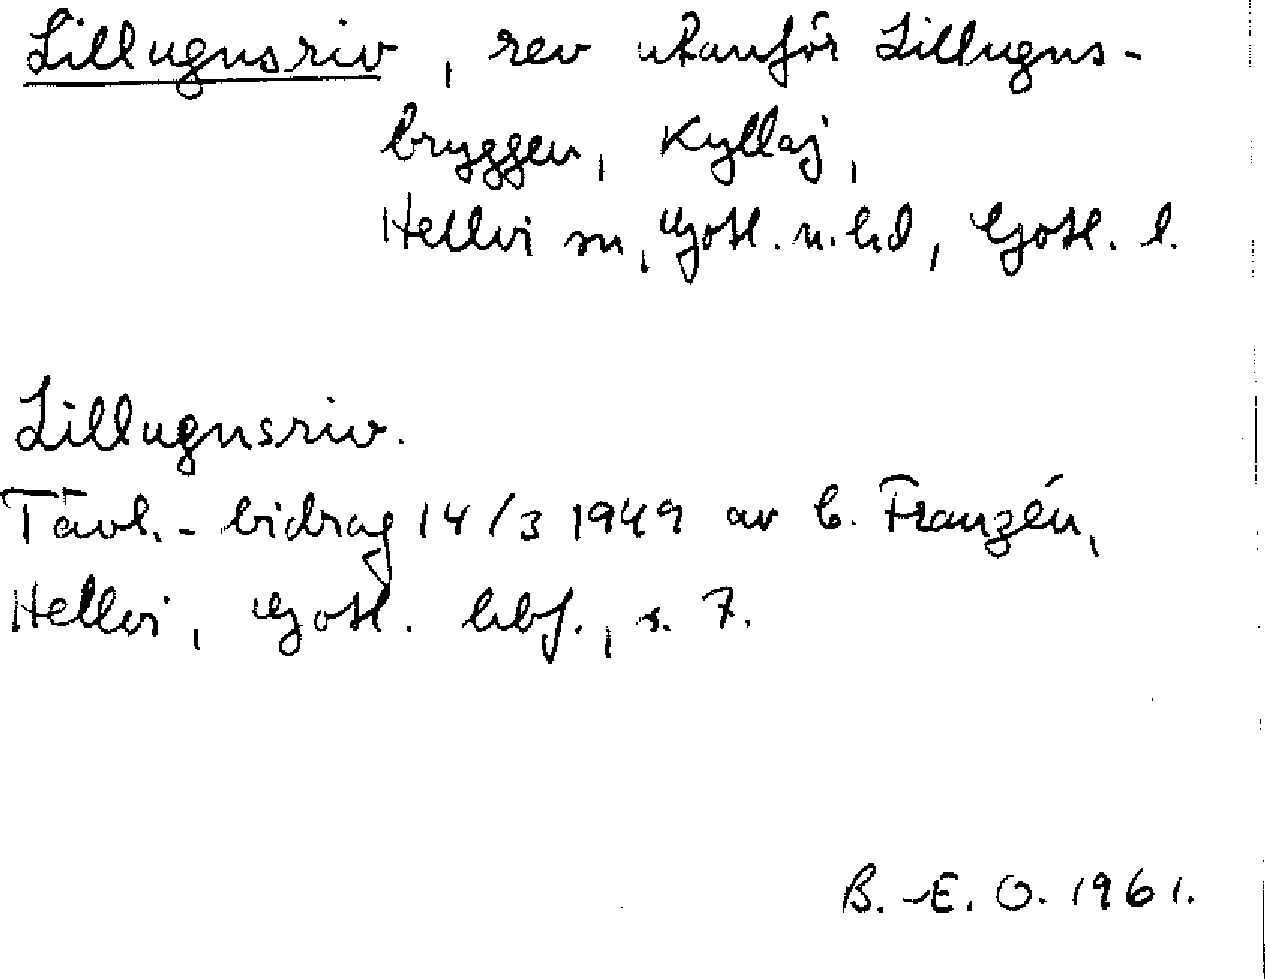 Lillugnsriv, rev utanför Lillugns-
bryggen, Kyllaj,
Hellvi sn, Gotl. n. hd, Gotl. l.
Lillugnsriv.
Tävl.-bidrag 14/3 1949 av B. Franzén,
Hellvi, Gotl. hbf., s. 7.
B.-E. O. 1961.